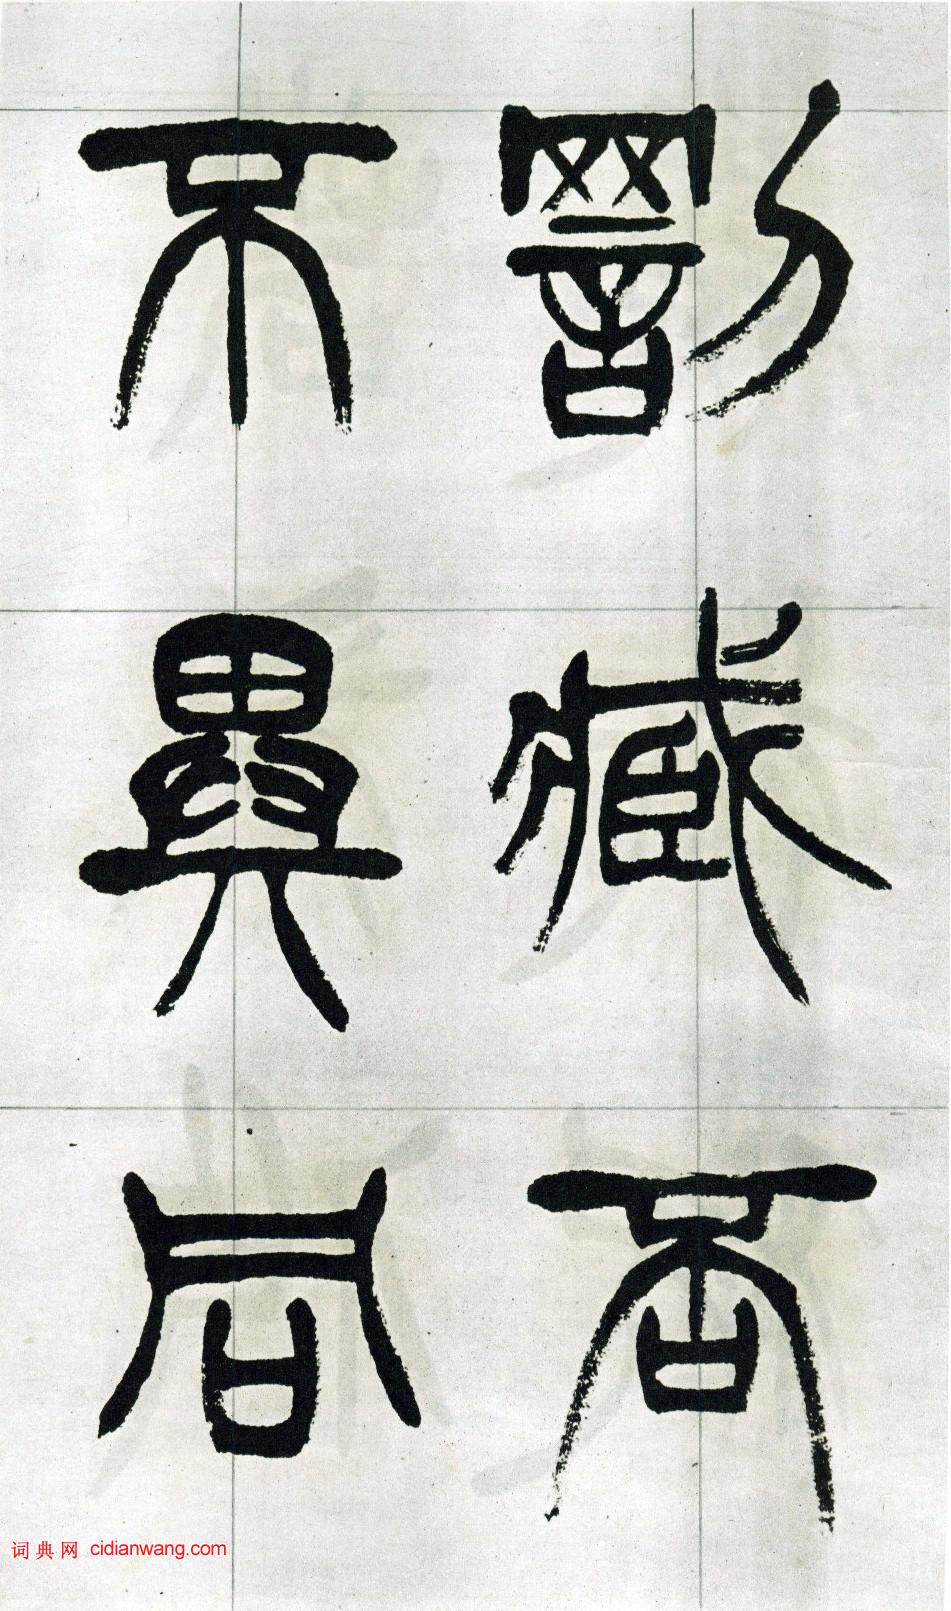 罰臧否
不異同
词典网 cidianwang.com